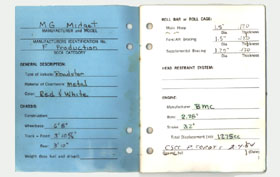 MG Midget
MANUFACTURER and MODEL
MANUFACTURERS IDENTIFICATION No.
F Production
SCCA CATEGORY
GENERAL DESCRIPTION:
Type of Vehicle Roadster
Material of Coachwork Metal
Color Red & White
CHASSIS:
Construction
Wheelbase 6'8"
Track - Front 3' 10
Rear 3' 10"
Weight (less fuel and driver)
ROLL BAR or ROLL CAGE:
Main Hoop 1.5" .120
Dia Thickness
Fore/Aft Bracing 1.5"
Dia Thickness
Supplemental Bracing
Dia Thickness
HEAD RESTRAINT SYSTEM:
ENGINE:
Manufacturer BMC
Bore 2.78"
Stroke 3.2"
Total Displacement 1275cc